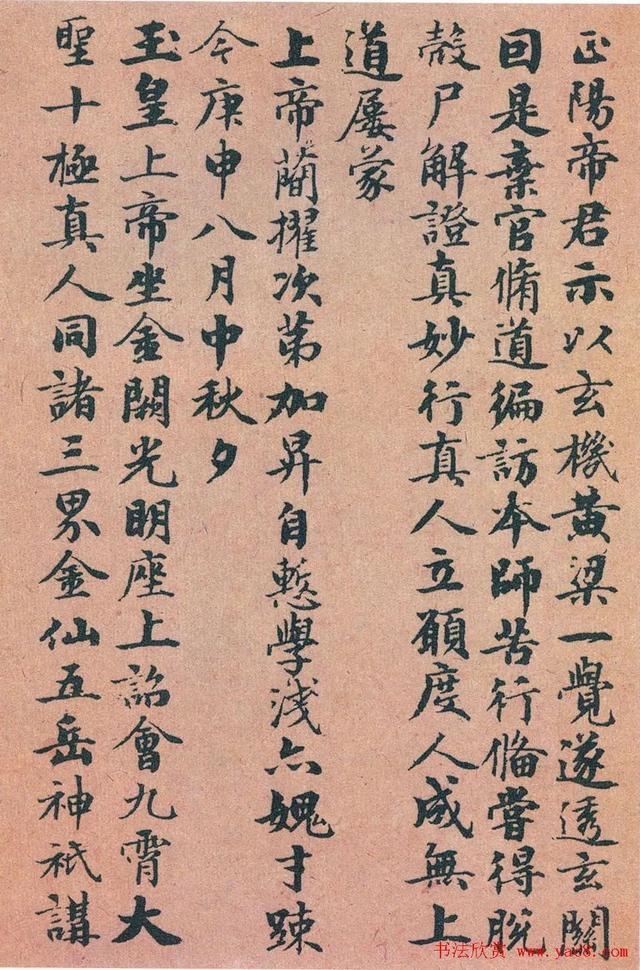 正陽帝君示以玄機黄粱一覺遂透玄關
回是棄官脩道徧訪本師苦行備嘗得脫
殼尸解證真妙行真人立願度人成無上
道屢蒙
上帝蕳擢次第加昇自慙學淺亦媿才踈
今庚申八月中秋夕
玉皇上帝坐金闕光明座上詔會九霄大
聖十極真人同諸三界金仙五岳神祇講
书法欣赏 www.yac8.com